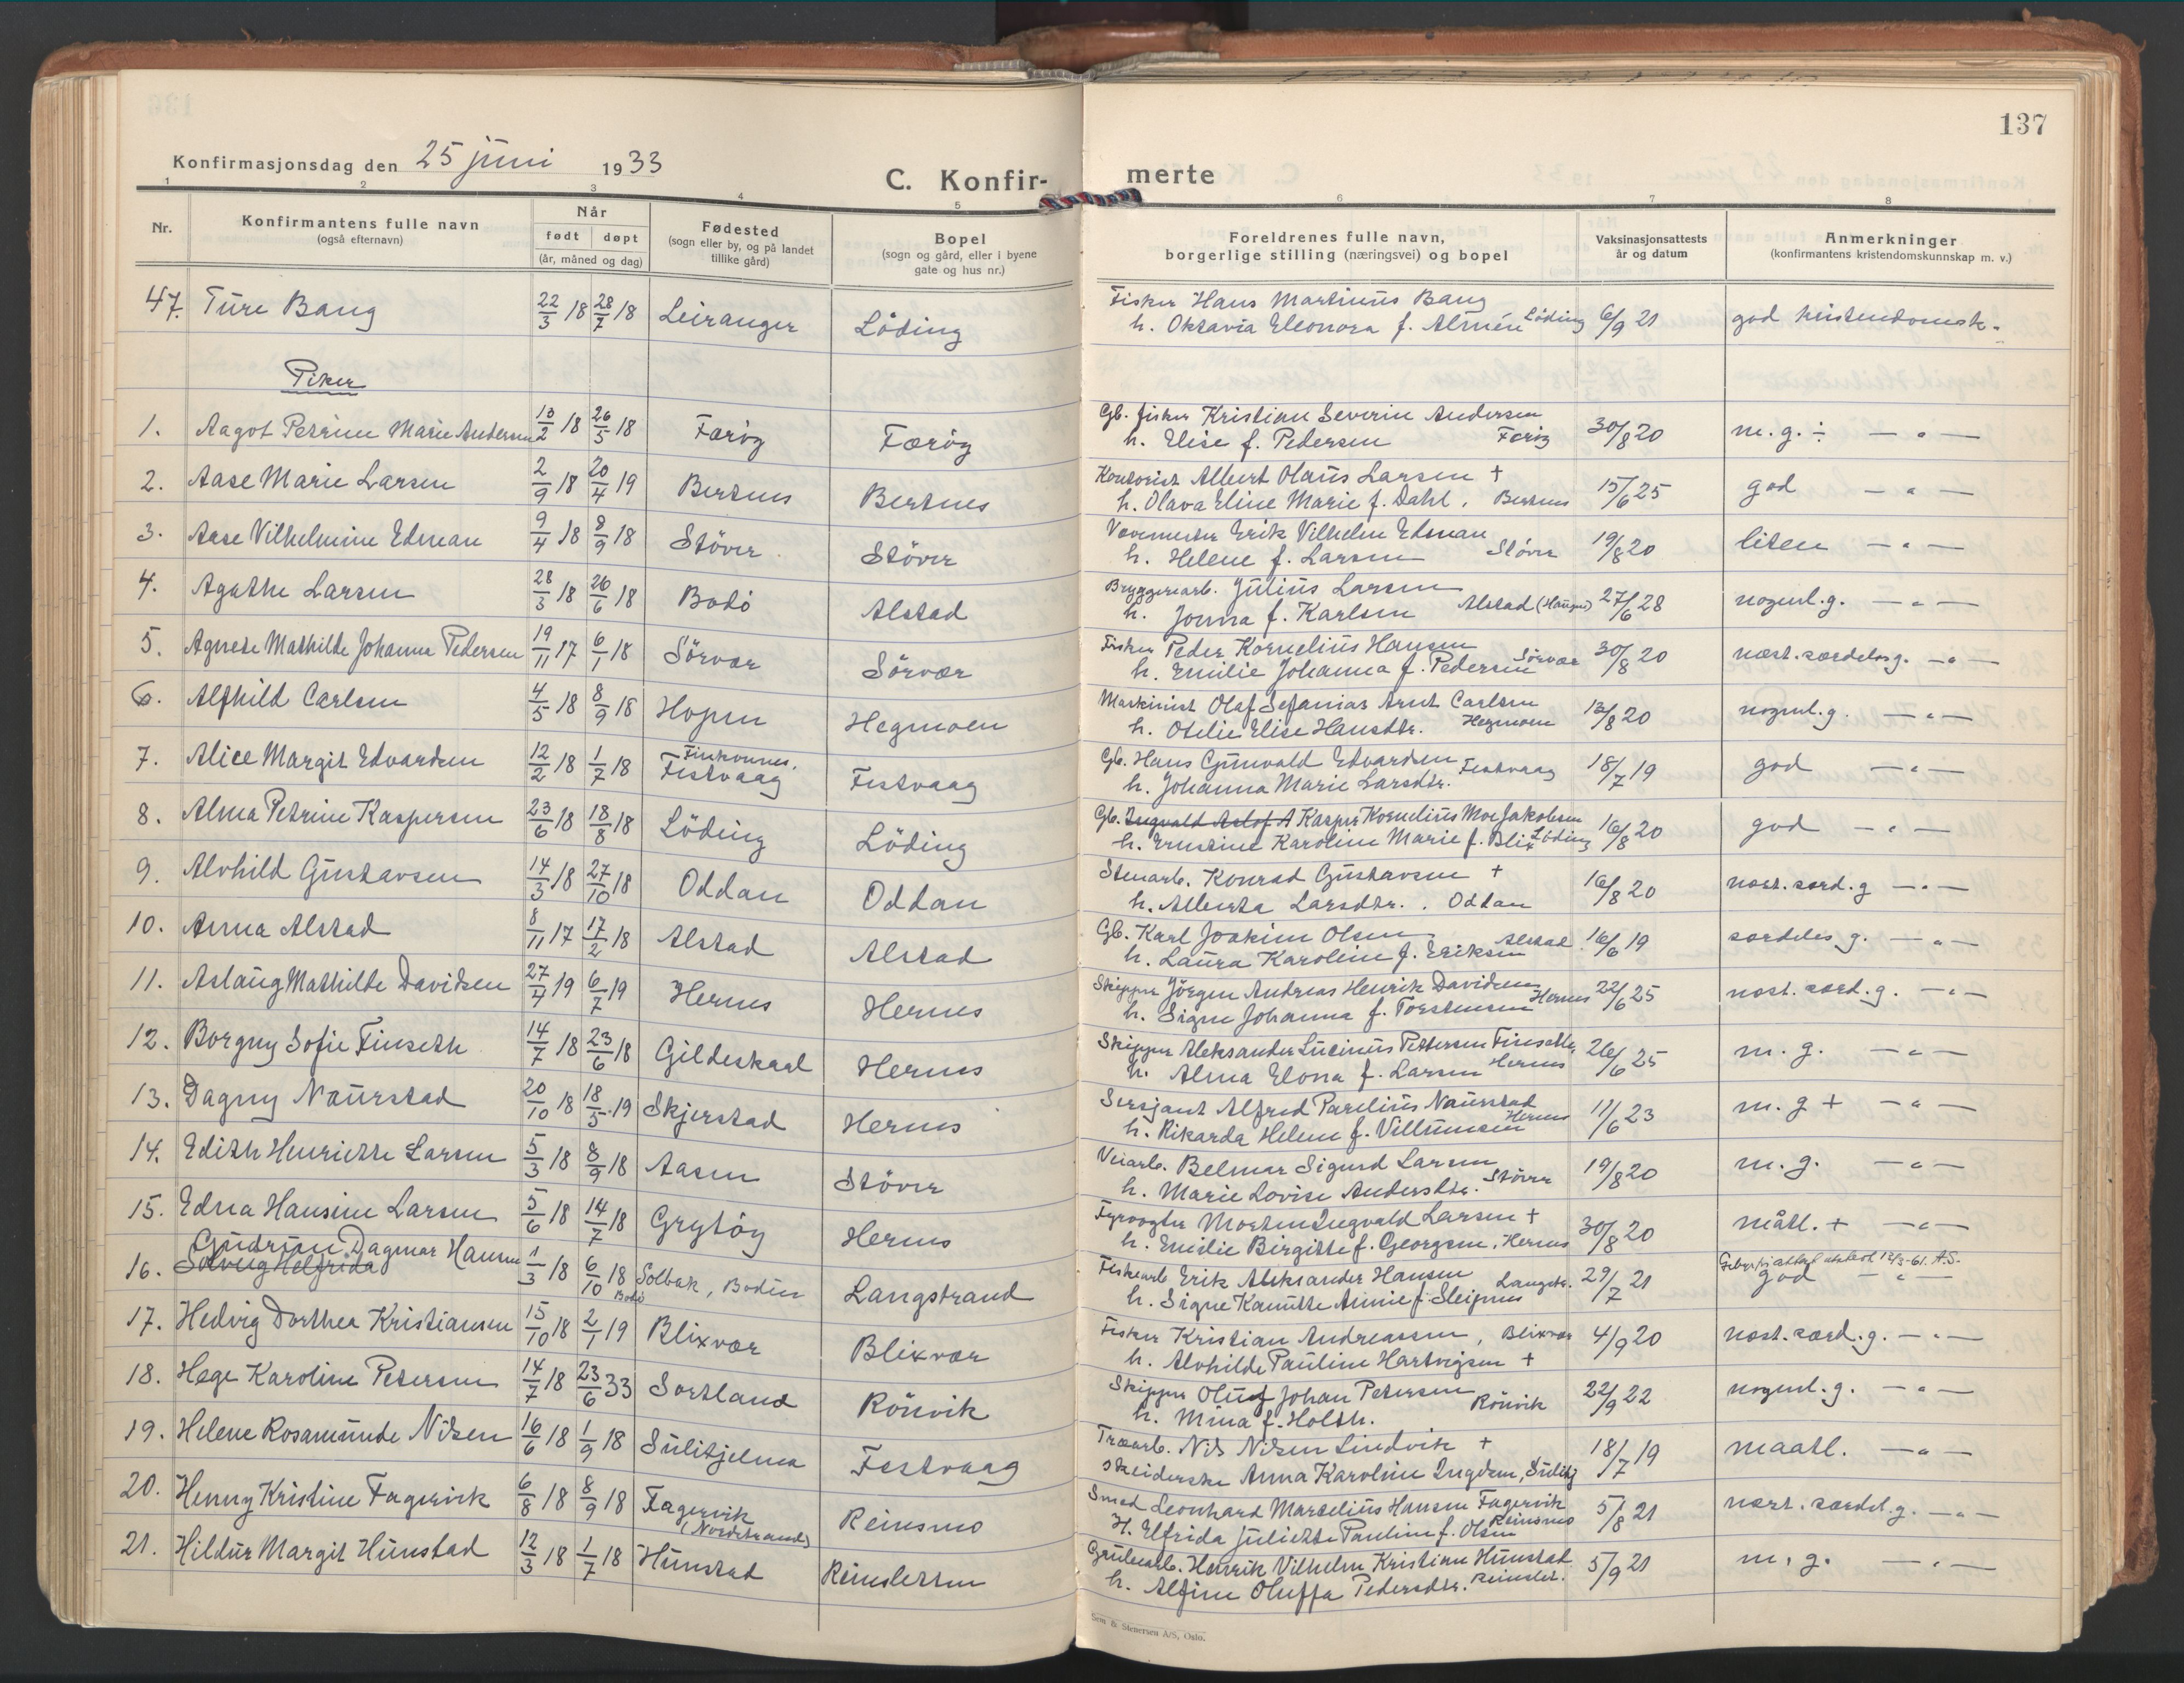 137
Konfirmasjonsdag den 25 juni 1933
C. Konfirmerte
1 2 3 4 5 6 7 8
Nr. Konfirmantens fulle navn (også efternavn) Når født døpt (år, måned og dag) Fødested (sogn eller by, og på landet tillike gård) Bopel (sogn og gård, eller i byene gate og hus nr.) Foreldrenes fulle navn, borgerlige stilling (næringsvei) og bopel Vaksinasjonsattests år og datum Anmerkninger (konfirmantens kristendomskunnskap m. v.)
47. Ture Bang 22/3 18 28/7 18 Leiranger Löding Fisker Hans Martinus Bang
h. Oktavia Eleonora f. Almén Löding 6/9 21 god kristendomsk.
Piker
1. Aagot Petrine Marie Andersen 13/2 18 26/5 18 Faröy Færöy Gb. fisker Kristian Severin Andersen
h. Elise f. Pedersen Faröy 30/8 20 m. g. ÷ — " —
2. Aase Marie Larsen 2/9 18 20/4 19 Bertnes Bertnes Kontorist Albert Olaus Larsen +
h. Olava Eline Marie f. Dahl. Bertnes 15/6 25 god — " —
3. Aase Vilhelmine Edman 9/4 18 8/9 18 Stöver Stöver Vovemester Erik Vilhelm Edman
h. Helene f. Larsen Stöver 19/8 20 liten — " —
4. Agathe Larsen 28/3 18 26/6 18 Bodö Alstad Bryggeriarb. Julius Larsen
h. Jonna f. Karlsen Alstad (Haugen) 27/6 28 nogenl. g. — " —
5. Agnete Mathilde Johanna Pedersen 19/11 17 6/1 18 Sörvær Sörvær Fisker Peder Kornelius Hansen
h. Emilie Johanna f. Pedersen Sörvær 30/8 20 næst. særdeles g. — " —
6. Alfhild Carlsen 4/5 18 8/9 18 Hopen Hegmoen Maskinist Olaf Sefanias Arnt Carlsen
h. Otelie Elise Hansdtr. Hegmoen 13/8 20 nogenl. g. — " —
7. Alice Margit Edvardsen 12/2 18 1/7 18 Finkonnes. Festvaag Festvaag Gb. Hans Gunvald Edvardsen
h. Johanna Marie Larsdtr. Festvaag 18/7 19 god — " —
8. Alma Petrine Kaspersen 23/6 18 18/8 18 Löding Löding Gb. Ingvald Adolf A Kasper Kornelius Moe Jakobsen
h. Ernstine Karoline Marie f. Blix Löding 16/8 20 god — " —
9. Alvhild Gustavsen 14/3 18 27/10 18 Oddan Oddan Stenarb. Konrad Gustavsen +
h. Alberta Larsdtr. . Oddan 16/8 20 næst. særd. g — " —
10. Anna Alstad 8/11 17 17/2 18 Alstad Alstad Gb. Karl Joakim Olsen
h. Laura Karoline f. Eriksen Alstad 16/6 19 særdeles g. — " —
11. Aslaug Mathilde Davidsen 27/4 19 6/7 19 Hernes Hernes Skipper Jörgen Andreas Henrik Davidsen
h. Signe Johanna f. Torstensen Hernes 22/6 25 næst. særd. g. — " —
12. Borgny Sofie Finseth 14/7 18 23/6 18 Gildeskaal Hernes Skipper Aleksander Lucinus Pettersen Finseth
h. Alma Elona f. Larsen Hernes 26/6 25 m. g. — " —
13. Dagny Naurstad 20/10 18 18/5 19 Skjerstad Hernes Sersjant Alfred Parelius Naurstad
h. Rikarda Helene f. Villumsen Hernes 11/6 23 m. g + — " —
14. Edith Henriette Larsen 5/3 18 8/9 18 Aasen Stöver Veiarb. Belmar Sigurd Larsen
h. Marie Lovise Andersdtr. Stöver 19/8 20 m. g. — " —
15. Edna Hansine Larsen 5/6 18 14/7 18 Grytöy Hernes Fyrvogter Morten Ingvald Larsen +
h. Emilie Birgitte f. Georgsen, Hernes 30/8 20 måtl. + — " —
16. Gudrun Dagmar Hansen Solveig Helfrida 1/3 18 6/10 18 Bodö Solbak, Bodin Langstrand Fiskearb Erik Aleksander Hansen
h. Signe Kanutte Annie f. Sleipnes Langstr. 29/7 21 god — " —
17. Hedvig Dorthea Kristiansen 15/10 18 2/1 19 Blixvær Blixvær Fisker Kristian Andreassen, Blixvær
h. Alvhilde Pauline Hartvigsen + 4/9 20 næst. særd. g. — " —
18. Hege Karoline Petersen 14/7 18 23/6 33 Sortland Rönvik Skipper Oluf Johan Petersen
h. Mina f. Holth. Rönvik 22/9 22 nogenl. g. — " —
19. Helene Rosamunde Nilsen 16/6 18 1/9 18 Sulitjelma Festvaag Træarb. Nils Nilsen Lindvik +
skeiderske Anna Karoline Ingdsen, Sulitj 18/7 19 maatl. — " —
20. Henny Kristine Fagervik 6/8 18 8/9 18 Fagervik (Nordstrand) Reinsmo Smed Leonhard Marselius Hansen Fagervik
H. Elfrida Juliette Pauline f. Olsen Reinsmo 5/8 21 næst. særdel. g. — " —
21. Hildur Margit Hunstad 12/3 18 1/7 18 Hunstad Reinsletten Grubearb. Henrik Vilhelm Kristian Hunstad
h. Alfine Oluffa Pedersdtr. Reinslet. 5/9 21 m. g. — " —
Sem & Stenersen A/S, Oslo.